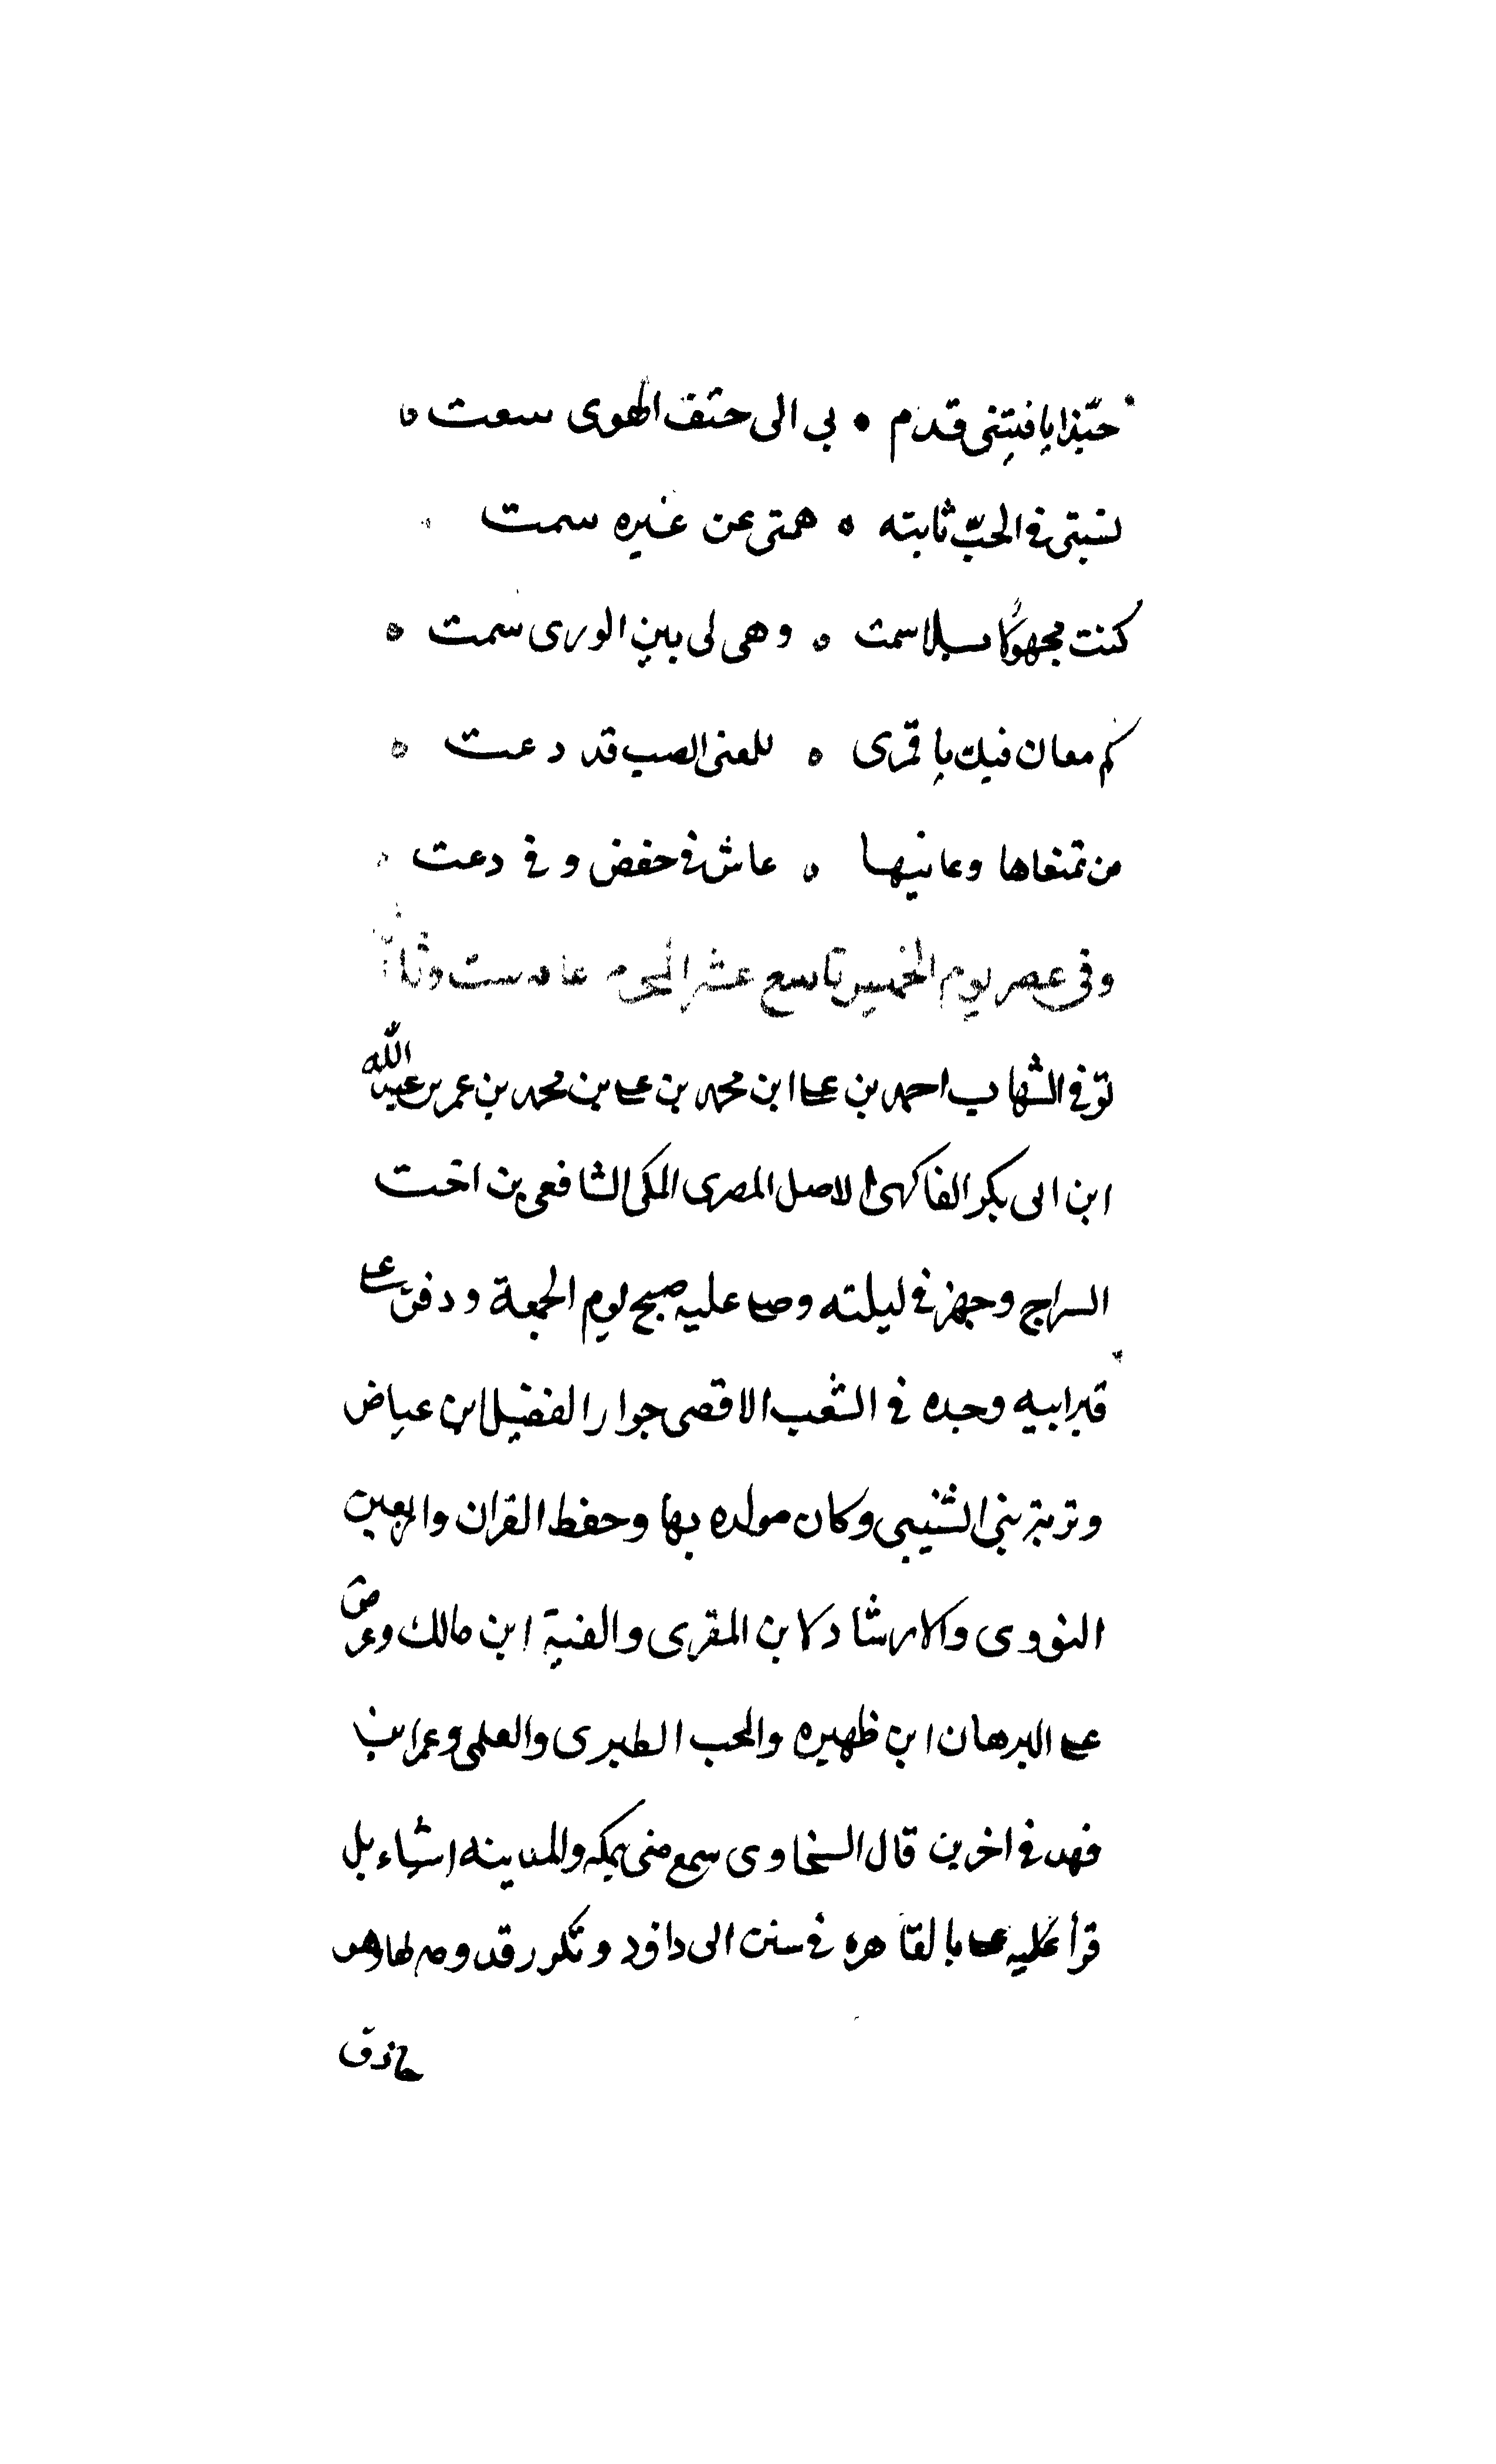 حبّذا يا فتنتي قدم ه بي الى حتف الهوى سعت ه
نسبتي في الحبّ ثابته ه همتي عن غيره سمت
كنت مجهولا بلا سمت ه وهي لي بين الورى سمت ه
كم معان فيك يا قمري ه للمعنى الصب قد دعت ه
من تمنعاها وعانيها ه عاش في خفض وفي دعت
وفي عصر يوم الخميس تاسع عشر المحرم عام ست
توفي الشهاب احمد بن على ابن محمد بن على بن محمد بن عمر بن عبد الله
ابن ابى بكر الفاكهى الاصل المصرى المكى الشافعى بن اخت
السراج وجهز في ليلته وصلى عليه صبح يوم الجمعة ودفن على
قبر ابيه وجده في الشعب الاقصى جوار الفضيل بن عياض
وتربة بنى الشيبى وكان مولده بها وحفظ القران واربعين
النووى والارشاد لابن المقرى والفية ابن مالك وعرض
على البرهان ابن ظهيره والمحب الطبرى والعلمى وعمر ابن
فهد في اخرين قال السخاوى سمع منى بمكه والمدينه اشياء بل
قرأ عليه على بالقاهره في سنن ابى داود وتكرر قدومه لها وهو
حاذق